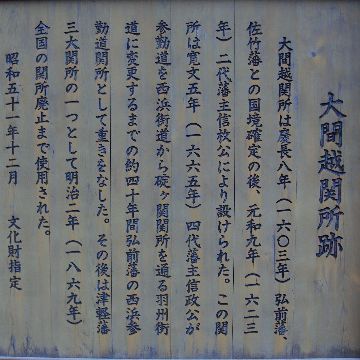 大間越関所跡
大間越関所は慶長八年（一六〇三年）弘前藩、
佐竹藩との国境確定の後、元和九年（一六二三
年）二代藩主信枚公により設けられた。この関
所は寛文五年（一六六五年）四代藩主信政公が
参勤道を西浜街道から碇ヶ関関所を通る羽州街
道に変更するまでの約四十年間弘前藩の西浜参
勤道関所として重きをなした。その後は津軽藩
三大関所の一つとして明治二年（一八六九年）
全国の関所廃止まで使用された。
昭和五十一年十二月　文化財指定